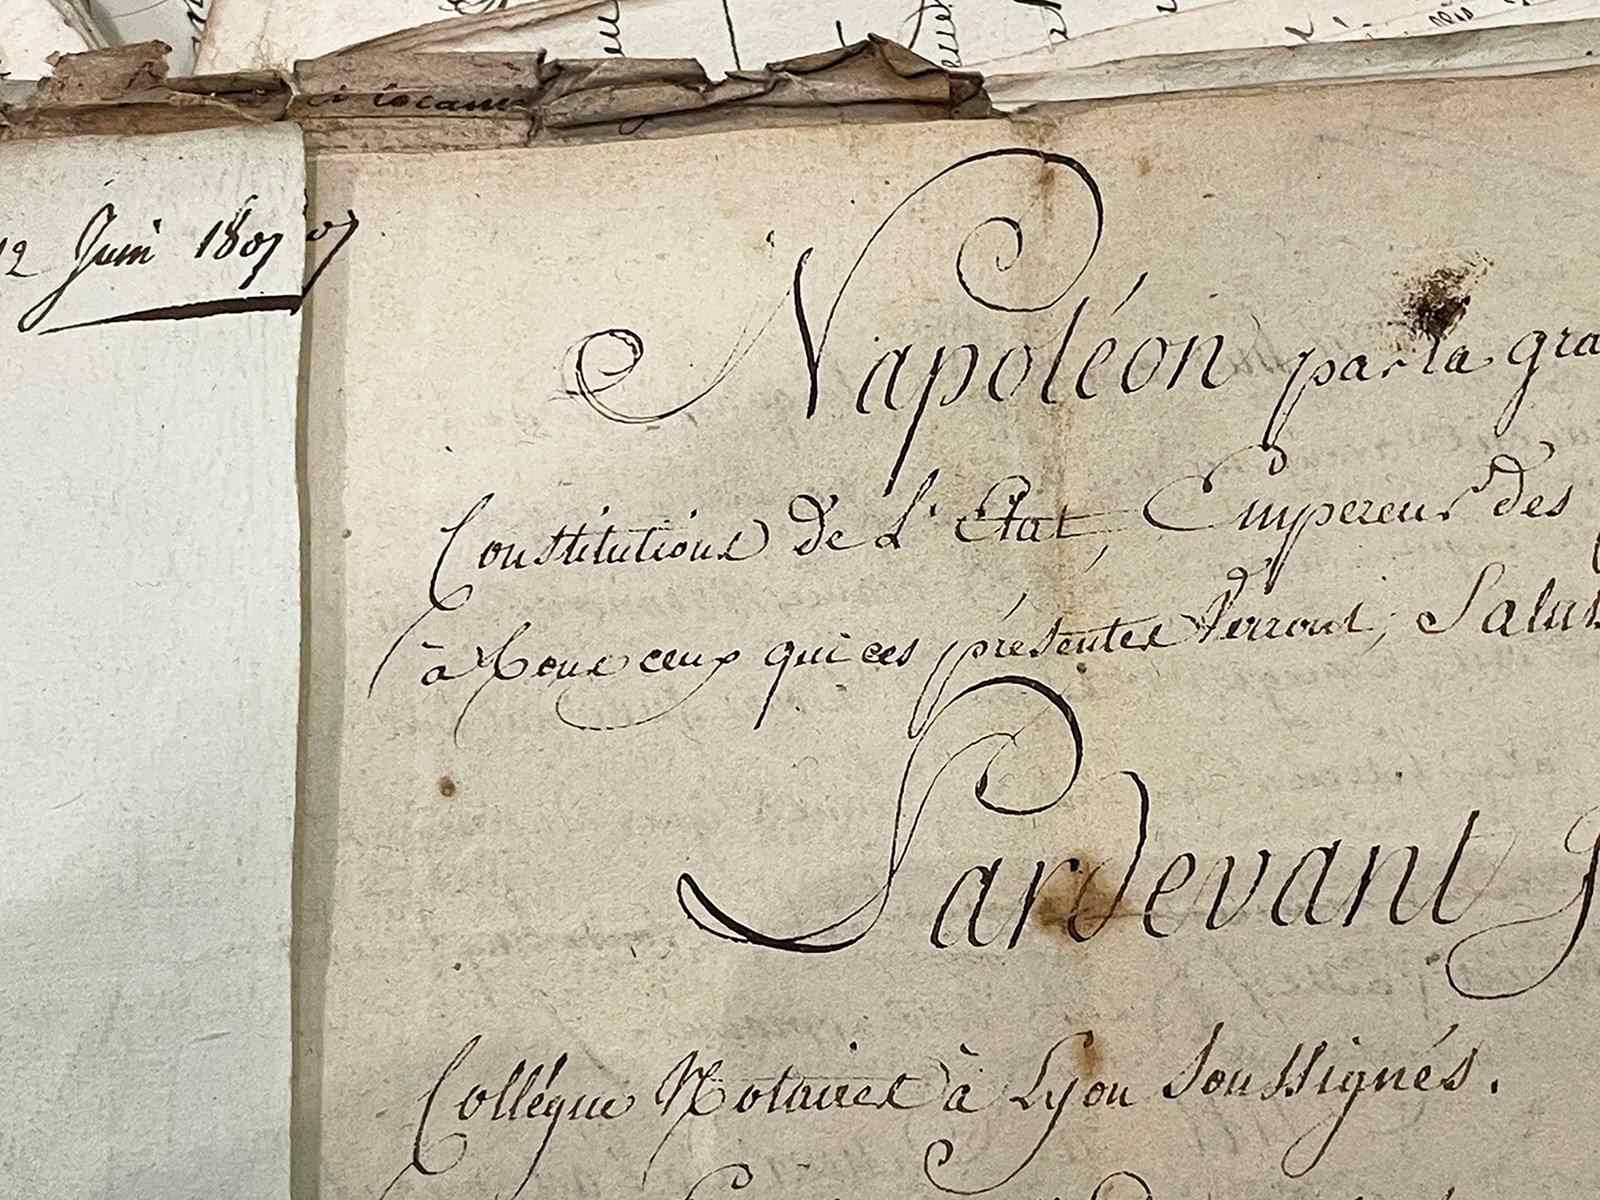 12 Juin 1807
Napoléon par la gra
Constitutions de L'Etat, Empereur des
à Tous ceux qui ces présentes Verront, Salut
Pardevant
Collégue Notaires à Lyon Soussignés.